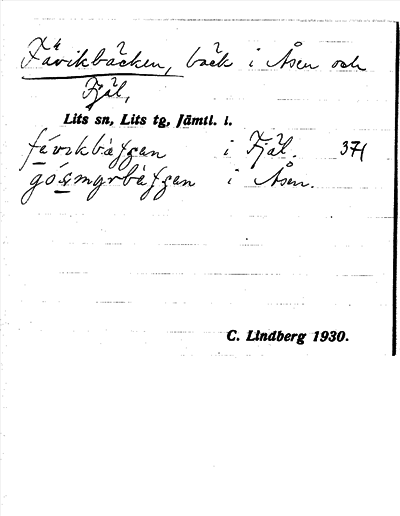 Fävikbäcken, bäck i Åsen och
Fjäl,
Lits sn, Lits tg, Jämtl. l.
i Fjäl. 371
i Åsen.
C. Lindberg 1930.